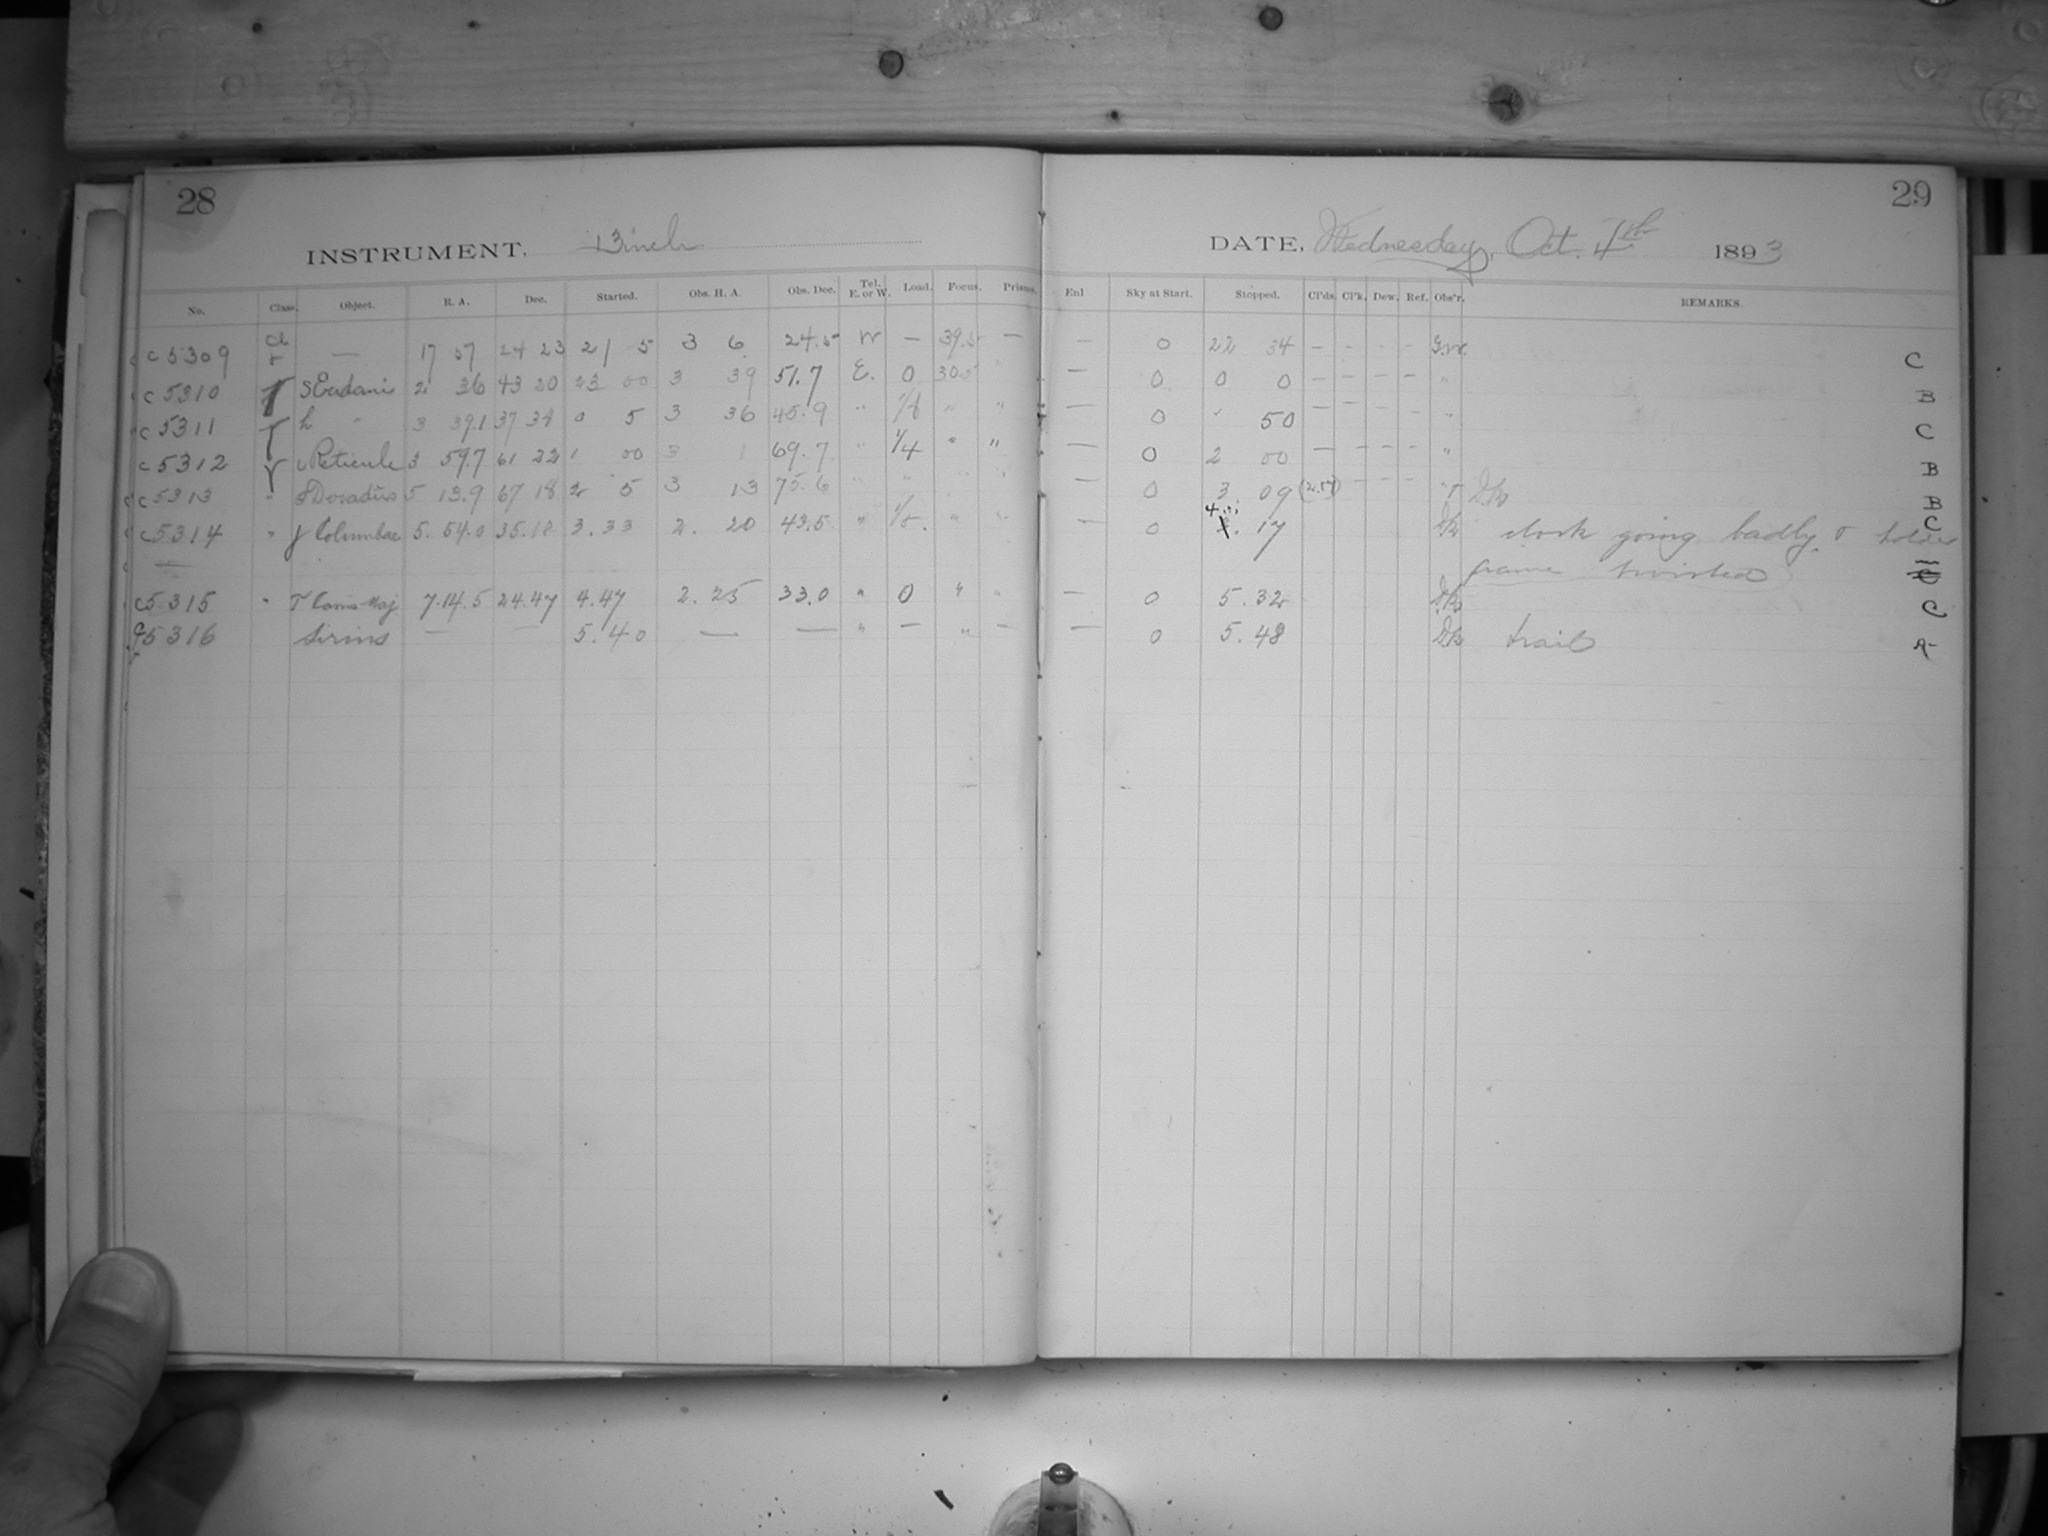 28
29
INSTRUMENT, 13 inch
DATE, Wednesday, Oct. 4th 1893
No. Class. Object. R. A. Dec. Started. Obs. H. A. Obs. Dec. Tel. E. or W. Load. Focus. Prisms. Enl Sky at Start. Stopped. Cl'ds. Cl'k. Dew. Ref. Obs'r. REMARKS.
c 5309 — 17 57 24 23 21 5 3 6 24.5 W — 39.5 — — 0 22 34 – – – – C
c 5310 S Eridani 2 36 43 20 23 00 3 39 51.7 E. 0 30.5 " — 0 0 0 – – – – " B
c 5311 h " 3 39.1 37 38 0 5 3 36 45.9 " 1/8 " " — 0 " 50 – – – – " C
c 5312 Reticuli 3 59.7 61 22 1 00 3 1 69.7 " 1/4 " " — 0 2 00 – – – – " B
c 5313 " Doradus 5 13.9 67 18 2 5 3 13 75.6 " " " " — 0 3. 09 – – – B
c 5314 " γ Columbae 5. 54.0 35.18 3.33 2. 20 43.5 " 1/8. " " — 0 4.17 clock going badly & holder C
frame twisted
c5315 " τ Canis Maj. 7.14.5 24.47 4.47 2. 25 33.0 " 0 " " — 0 5.32 C
5316 Sirius — — 5.40 — — " — " — — 0 5.48 trail A